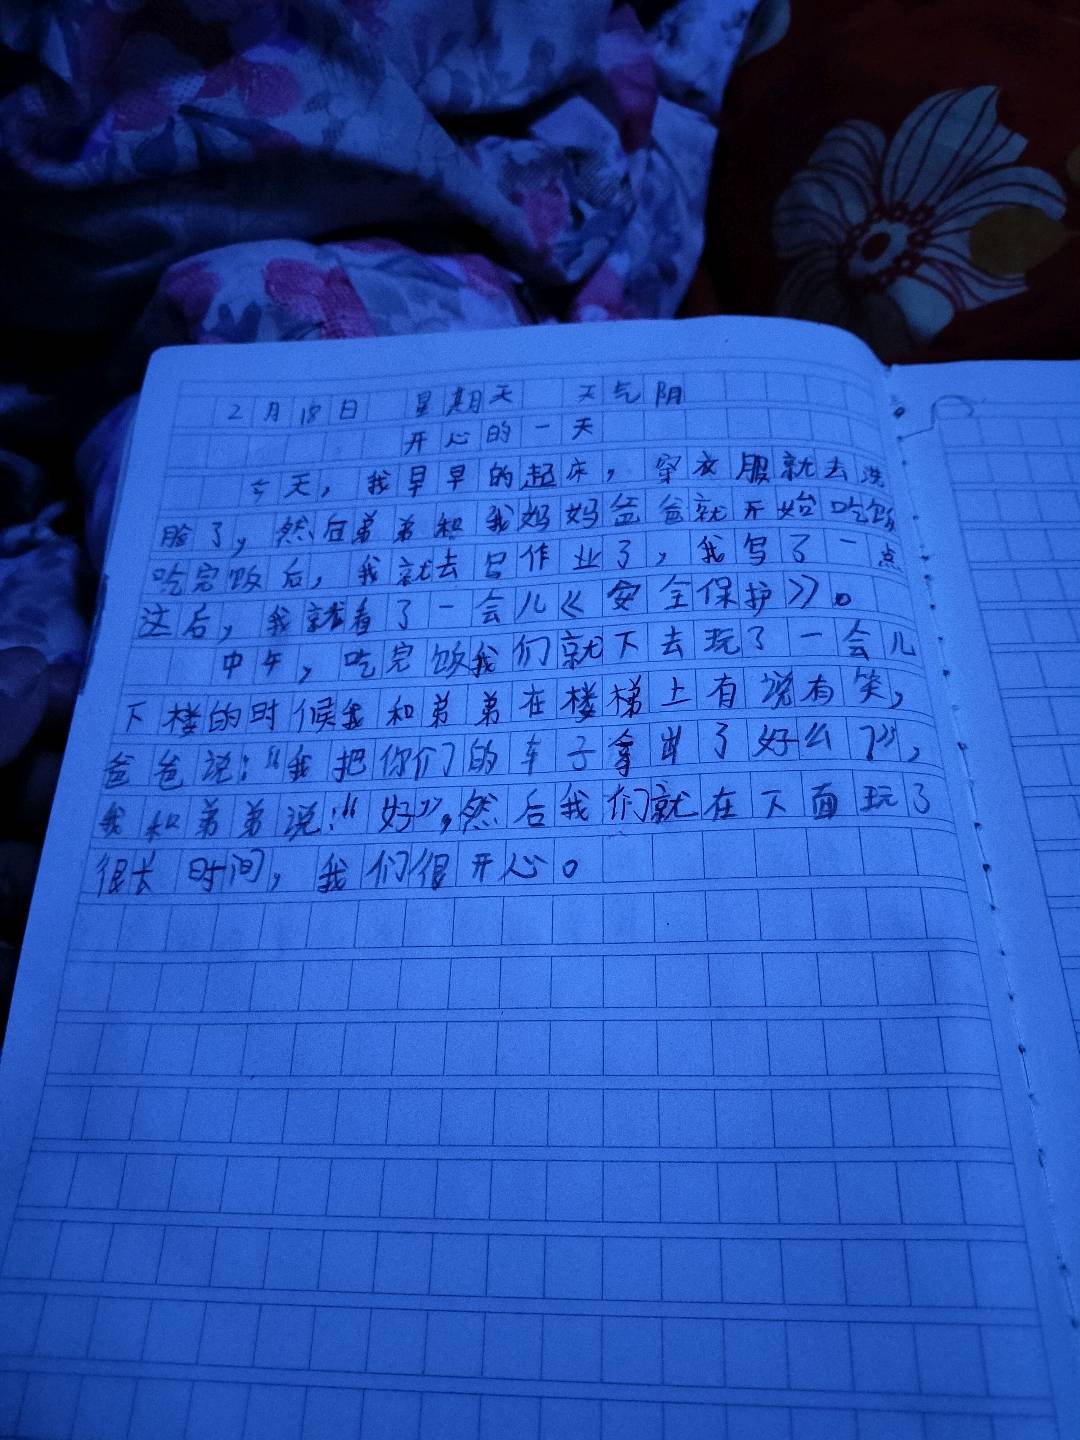 2月18日 星期天 天气阴
开心的一天
今天，我早早的起床，穿衣服就去洗
脸了，然后弟弟和我妈妈爸爸就开始吃饭
吃完饭后，我就去写作业了，我写了一点
这后，我就看了一会儿《安全保护》。
中午，吃完饭我们就下去玩了一会儿
下楼的时候我和弟弟在楼梯上有说有笑，
爸爸说：“我把你们的车子拿出了好么？”，
我和弟弟说：“好”，然后我们就在下面玩了
很长时间，我们很开心。